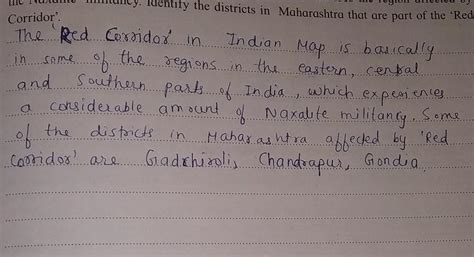 the Naxalite militancy. Identify the districts in Maharashtra that are part of the 'Red
Corridor'.
The 'Red Corridor' in Indian Map is basically
in some of the regions in the eastern, central
and Southern parts of India, which experiences
a considerable amount of Naxalite militancy. Some
of the districts in Maharashtra affected by 'Red
Corridor' are Gadchiroli, Chandrapur, Gondia.